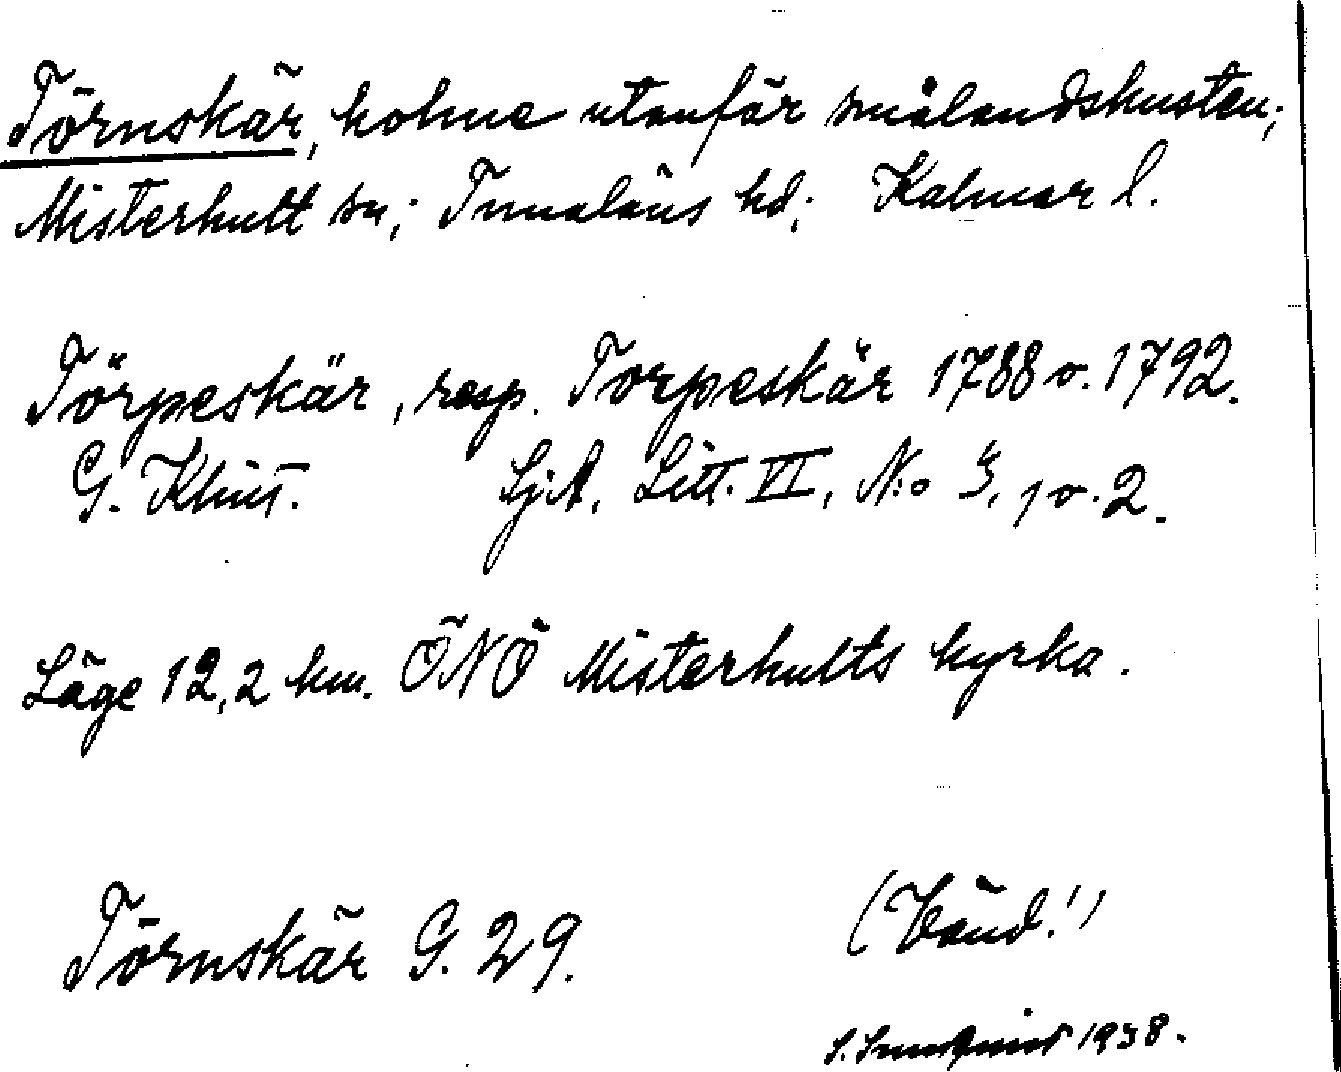 Törnskär, holme utanför smålandskusten;
Misterhult sn; Tunaläns hd; Kalmar l.
Törpeskär, resp. Torpeskär 1788 o. 1792.
G. Klint. Sj.A, Litt. VI, N:o 3, 1 o. 2.
Läge 12,2 km. ÖNÖ Misterhults kyrka.
Törnskär G. 29.
(Vänd!)
S. Sundquist 1938.